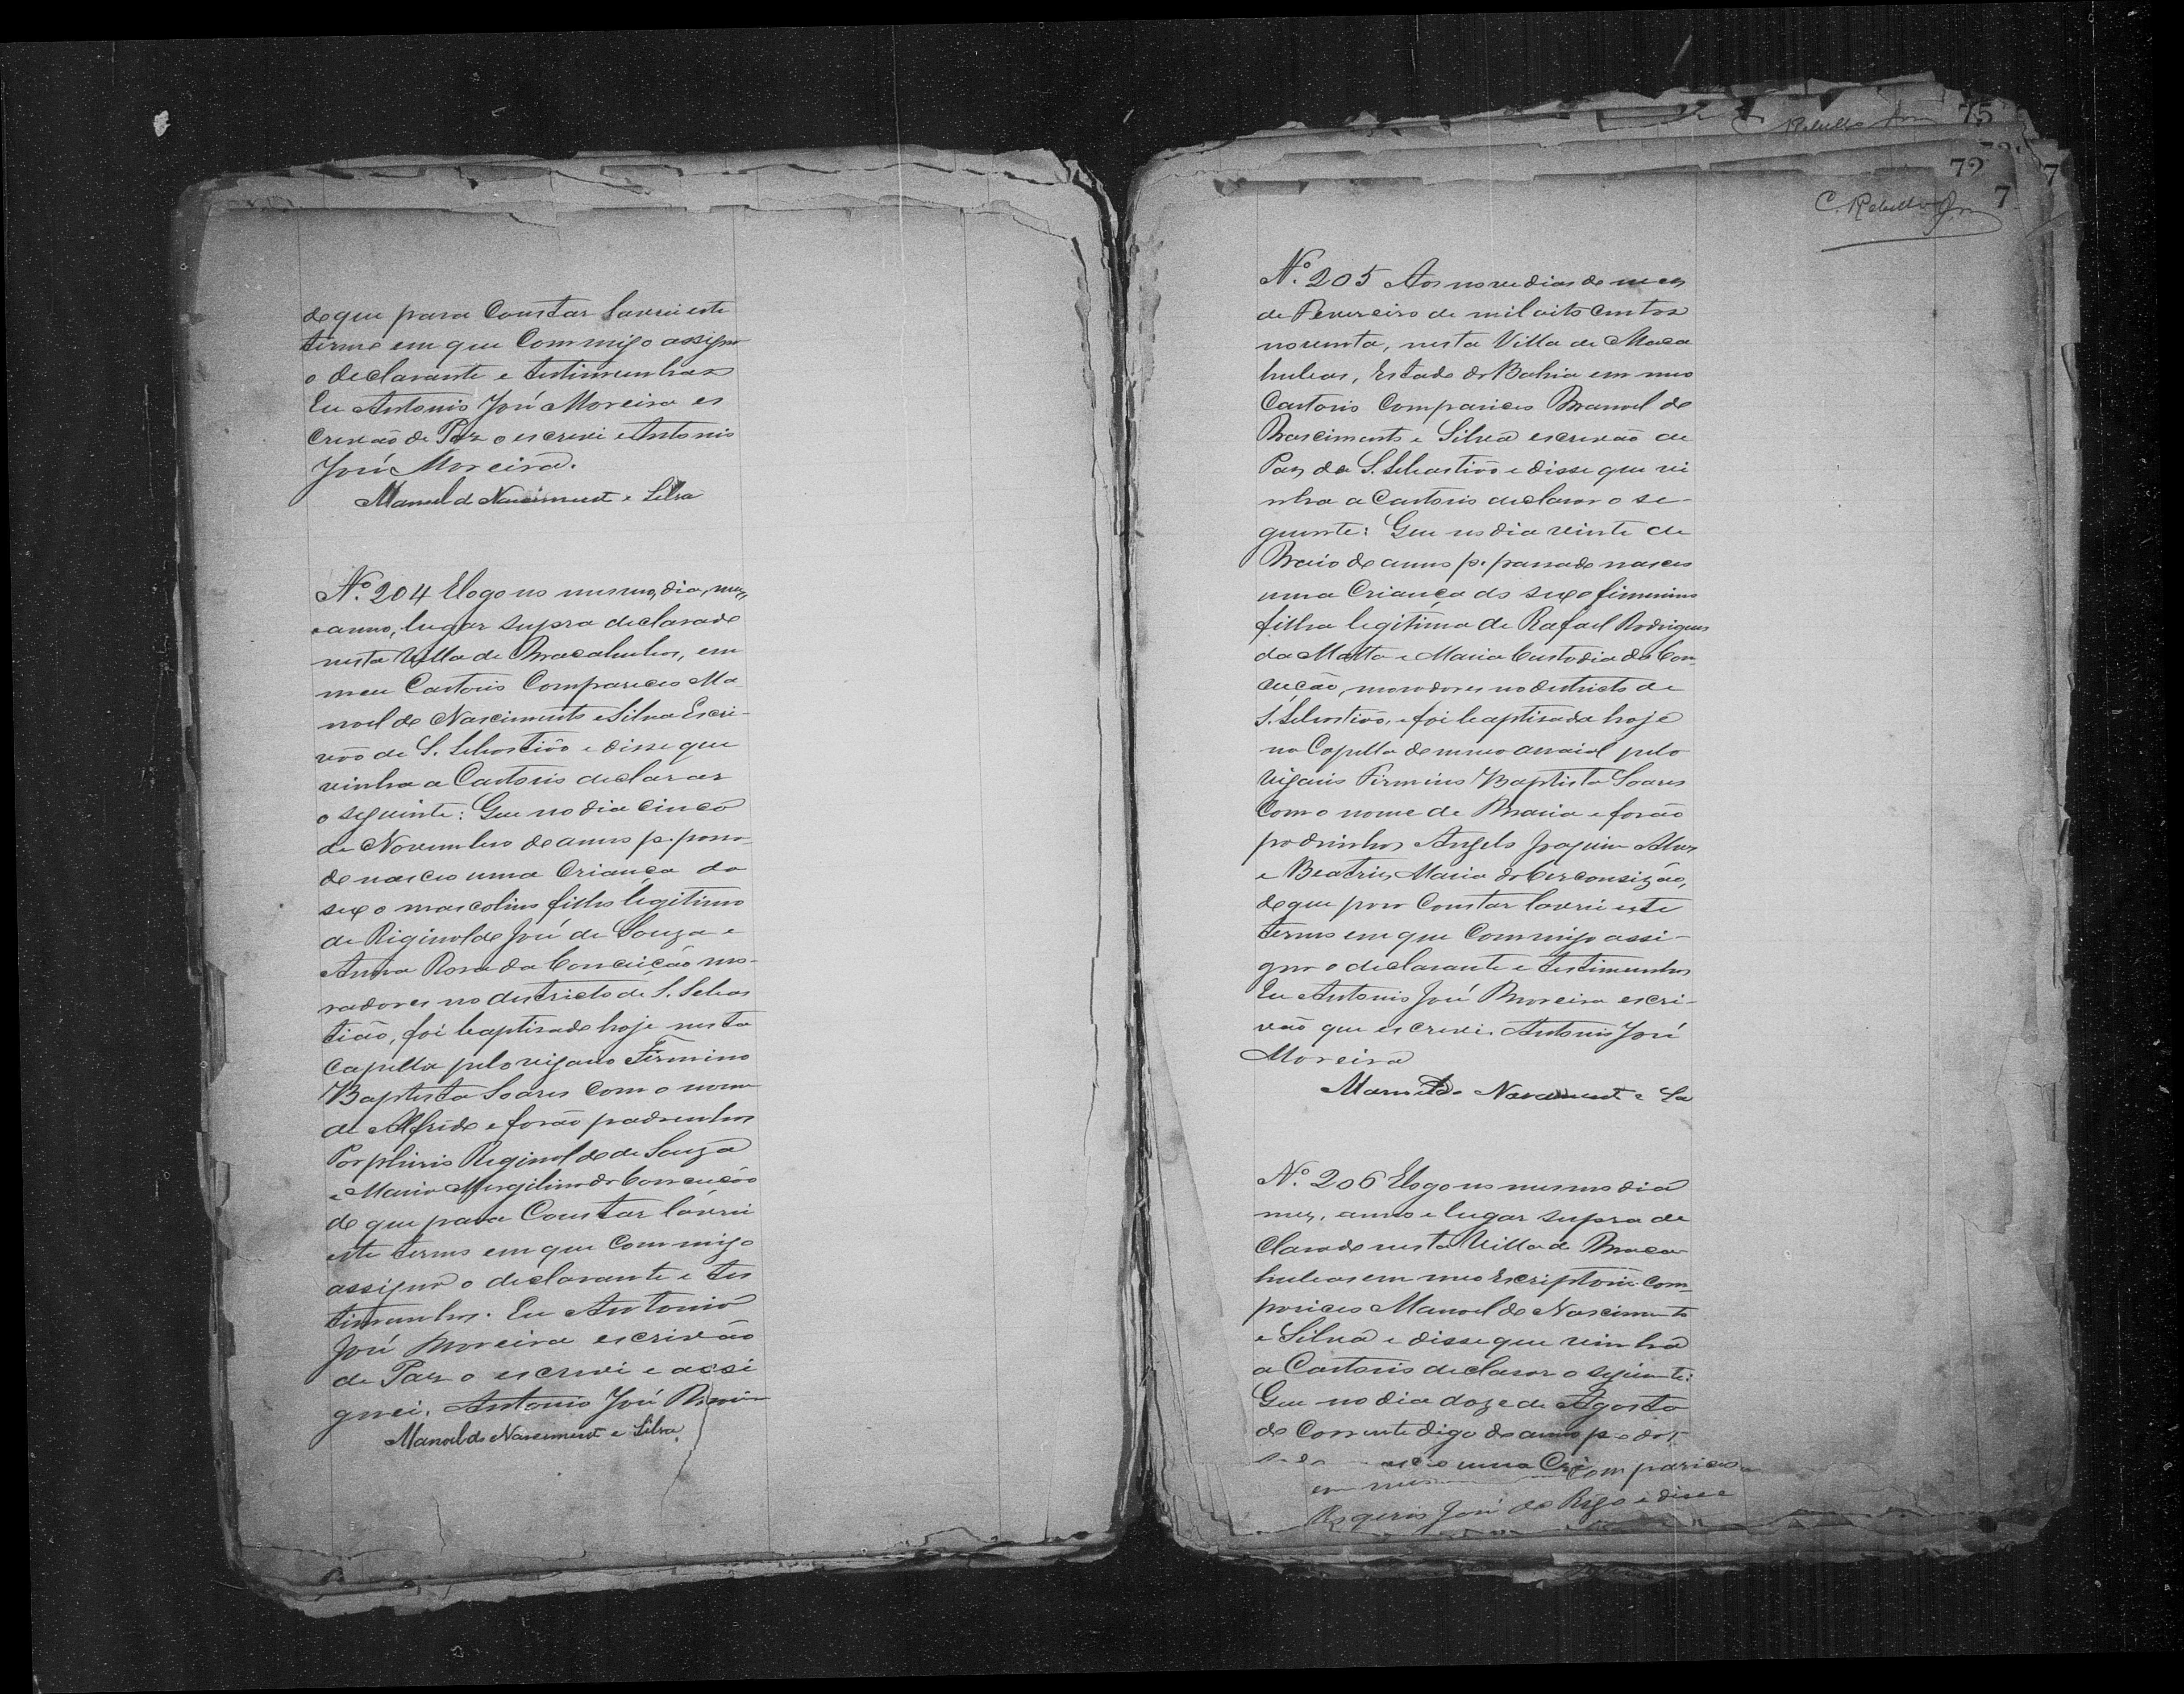 de que para Constar lavrei este
termo em que Commigo assigna
o declarante e testimunhas
Eu Antonio José Moreira es
crivão de Paz o escrevi Antonio
José Moreira.
Manoel do Nascimento e Silva
Nº. 204 E logo no mesmo, dia, mez,
anno, lugar supra declarado
nesta Villa de Macahubas, em
meu Cartorio Compareceo Ma
noel do Nascimento e Silva Escri-
vão de S. Sebastião e disse que
vinha a Cartorio declarar
o seguinte: Que no dia cinco
de Novembro do anno p. passa-
do nasceo uma Criança do
sexo mascolino filho legitimo
de Riginoldo José de Souza e
Anna Rosa da Conceição mo-
radores no districto de S. Sebas
tião, foi baptisado hoje nesta
Capella pelo vigario Firmino
Baptista Soares Com o nome
de Alfrido e forão padrinhos
Porphirio Reginoldo de Souza
e Maria da Conceição
de que para Constar lavrei
este termo em que Commigo
assigna o declarante e tes
timunhas. Eu Antonio
José Moreira escrivão
de Paz o escrevi e assi
gnei. Antonio José Moreira
Manoel do Nascimento e Silva
75
72
7
7
C. Rebello Jor
Nº. 205 Aos nove dias do mez
de Fevereiro de mil oito centos
noventa, nesta Villa de Maca
hubas, Estado da Bahia em meo
Cartorio Compariceo Manoel do
Nascimento e Silva escrivão de
Paz de S. Sebastião e disse que vi
nha a Cartorio declarar o se-
guinte: Que no dia vinte de
Maio do anno p. passado nasceo
uma Criança do sexo feminino
filha legitima de Rafael Rodrigues
da Matta e Maria Custodia da Con
ceição, moradores no destricto de
S. Sebastião, e foi baptisada hoje
na Capella do mesmo arraial pelo
Vigario Firmino Baptista Soares
Com o nome de Maria e forão
padrinhos Angelo Joaquim Alves
e Beatriz Maria da
de que para Constar lavrei este
termo em que Commigo assi-
gna o declarante e testimunhas
Eu Antonio José Moreira escri-
vão que escrevi. Antonio José
Moreira
Manoel do Nascimento e
Nº. 206 E logo no mesmo dia
mez, anno e lugar supra de
Clarado nesta Villa de Maca
hubas em meo Escriptorio Com
pariceo Manoel do Nascimento
e Silva e disse que vinha
a Cartorio declarar o seguinte:
Que no dia doze de Agosto
do Corrente digo do anno p.
uma Cri
em compariceo
Rogerio José do Rego e disse